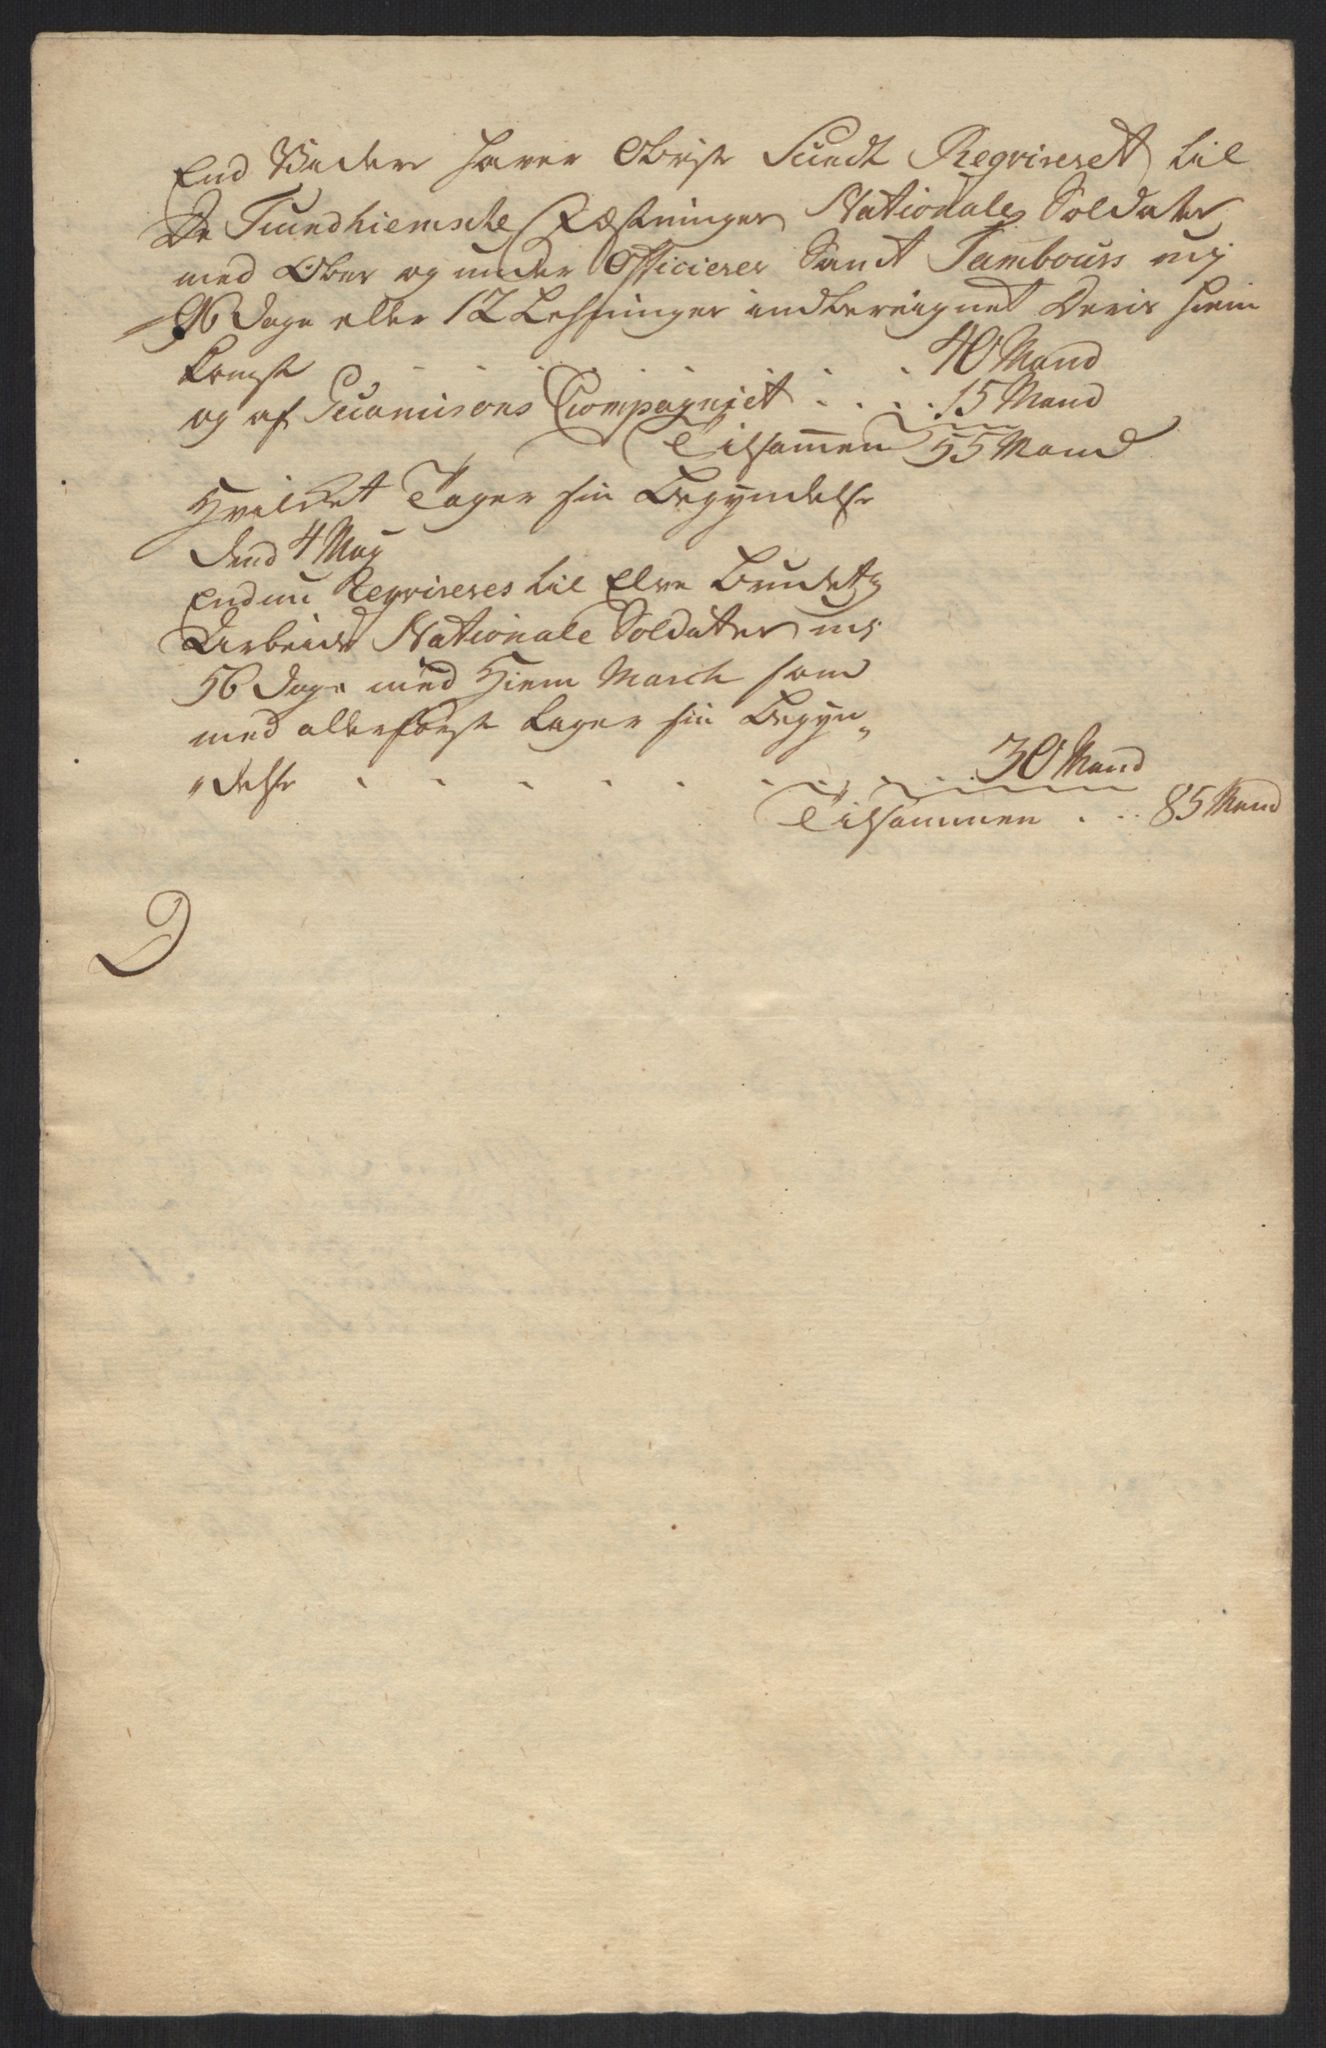 End Videre haver Obrist Sundt Reqvireret til
De Trundhiemske Fæstninger Nationale Soldater
med Ober og under Officierer Samt Tambours paa
96 Dage eller 12 Lehninger indbereignet Deris Hiem
komst . . . . . . . . 40 Mand
og af Guarnisons Compagniet . . . . 15 Mand
Tilsamen 55 Mand
Hvilket Tager sin Begyndelse
Dend 4 May
Endnu Reqvireres til Elve Brudetz
Arbeide Nationale Soldater paa
56 Dage med Hiem March som
med allerførst tager sin Begyn„
„delse . . . . . . . . . 30 Mand
Tilsammen . . . 85 Mand
D